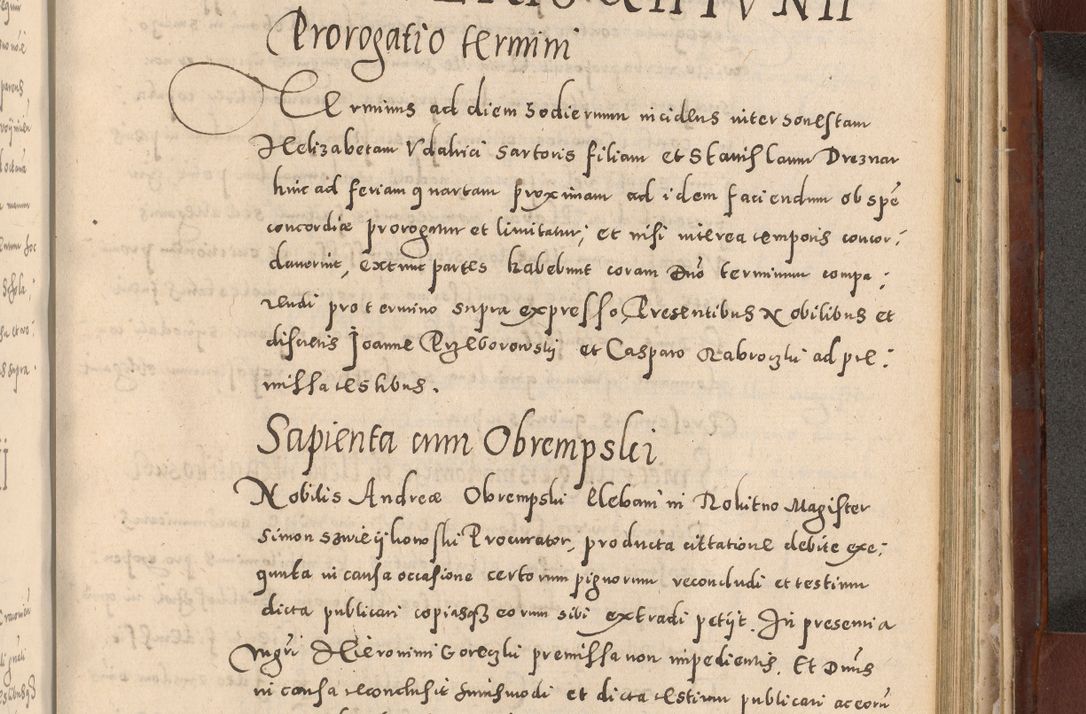 Prorogatio termini
Terminus ad diem hodiernum incidens inter honestam
Helizabetam Vdalrici Sartoris filiam et Stanislaum Dreznar
hinc ad feriam quartam proximam ad idem faciendum ob spē
concordiæ prorogatur et limitatur, et nisi interea temporis concor:
dauerint, extunc partes habebunt coram Dno terminum compa:
rendi pro termino supra expresso, Presentibus Nobilibus et
discretis Joanne Przeborowskij et Casparo Nabroczki ad pre:
missa testibus.
Sapienta cum Obrempski
Nobilis Andreæ Obrempski Plebani in Rokitno Magister
Simon Procurator, producta cittatione debite exe:
quuta in causa occasione certorum pignorum reconcludi et testium
dicta publicari copiasqȝ eorum sibi extradi petijt. In presentia
Mgri Hieronimi Goreczki premissa non impedientis. Et Dnus
in causa reconclusit huiusmodi et dicta testium publicari ac eorū